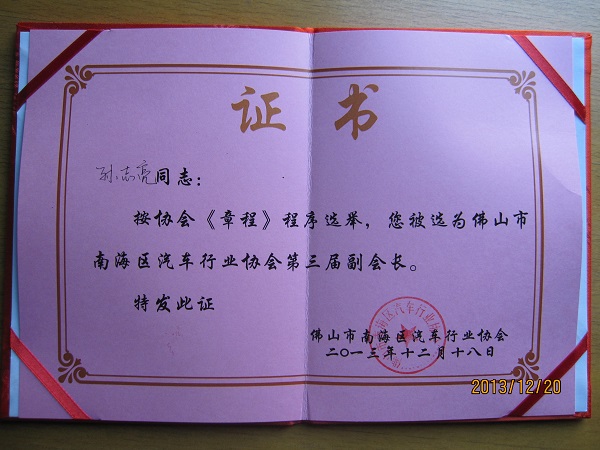 证书
志亮同志：
按协会《章程》程序选举，您被选为佛山市
南海区汽车行业协会第三届副会长。
特发此证
佛山市南海区汽车行业协会
二〇一三年十二月十八日
2013/12/20